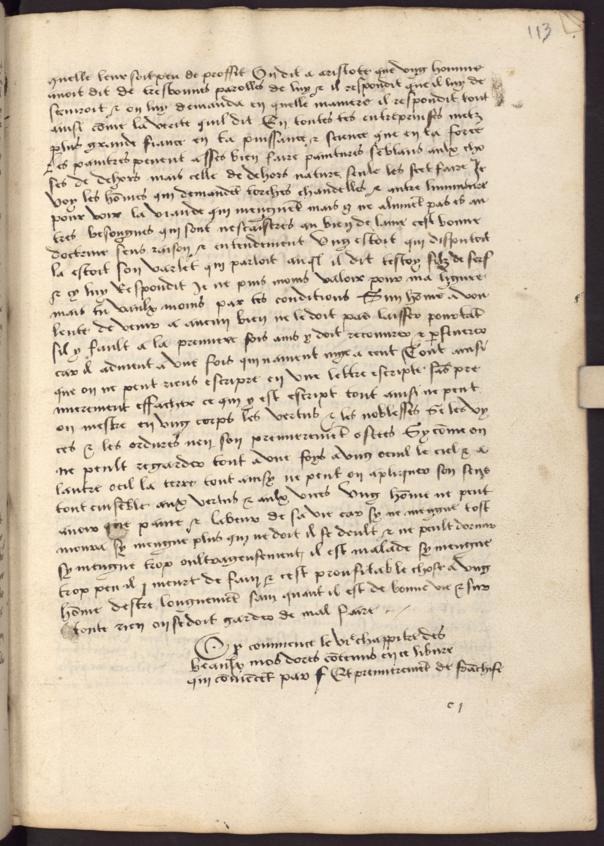 113
quelle leur soit peu de proffit On dit a aristote que ung homme
avoit dit de tresbonnes parolles de luy & il respondit que il luy de
serviroit & on luy demanda en quelle maniere il respondit tout
ainsi come la verite quil dit En toutes tes entreprinses metz
plus grande fiance en ta puissance & science que en ta force
Les paintres peuent asses bien faire paintures semblans aulx cho
ses de dehors mais celle de dehors nature seule les scet faire Je
voy les homes qui demandent torches chandelles & autre luminaire
pour voir la viande qui menguent mais ilz ne alument pas es au
tres besongnes qui sont necessaires au bien de lame cest bonne
doctrine sens raison & entendement Ung estoit qui disputoit
la estoit son varlet qui parloit ausi il dit tes toy filz de serf
& cy luy Respondit Je ne puis moins valoir pour ma lignee
mais tu vaulx moins par tes conditions Sung home a vou
lente de venir a aucun bien ne le doit pas laisser pourtant
sil y fault a la premiere fois ains y doit recouvrer & perseverer
car il advient a une fois qui navient mye a cent Tout ainsi
que on ne peut riens escripre en une lettre escripte sans pre
mierement effacher ce qui y est escript tout ainsi ne peut
on mestre en ung corps les vertus & les noblesses se les vy
ces & les ordures nen son premierement ostees Sy come on
ne peult regarder tout a une foys a ung oeuil le ciel & a
lautre oeil la terre tout ainsy ne peut on apliquer son sens
tout ensemble aux vertus & aulx vices Ung home ne peut
avoir que paine & labeur de sa vie car sy ne mengue tost
moura sy mengue plus qui ne doit il se deult & ne peult dormir
sy mengue trop oultrageusement il est malade sy mengue
trop peu il meurt de fain & cest proufitable chose a ung
home destre longuement sain quant il est de bonne vie & sur
toute rien on se doit garder de mal faire
Cy commence le vie chappitre des
beaulx mos dores contenus en ce livre
qui comencent par f Et premierement de
c j